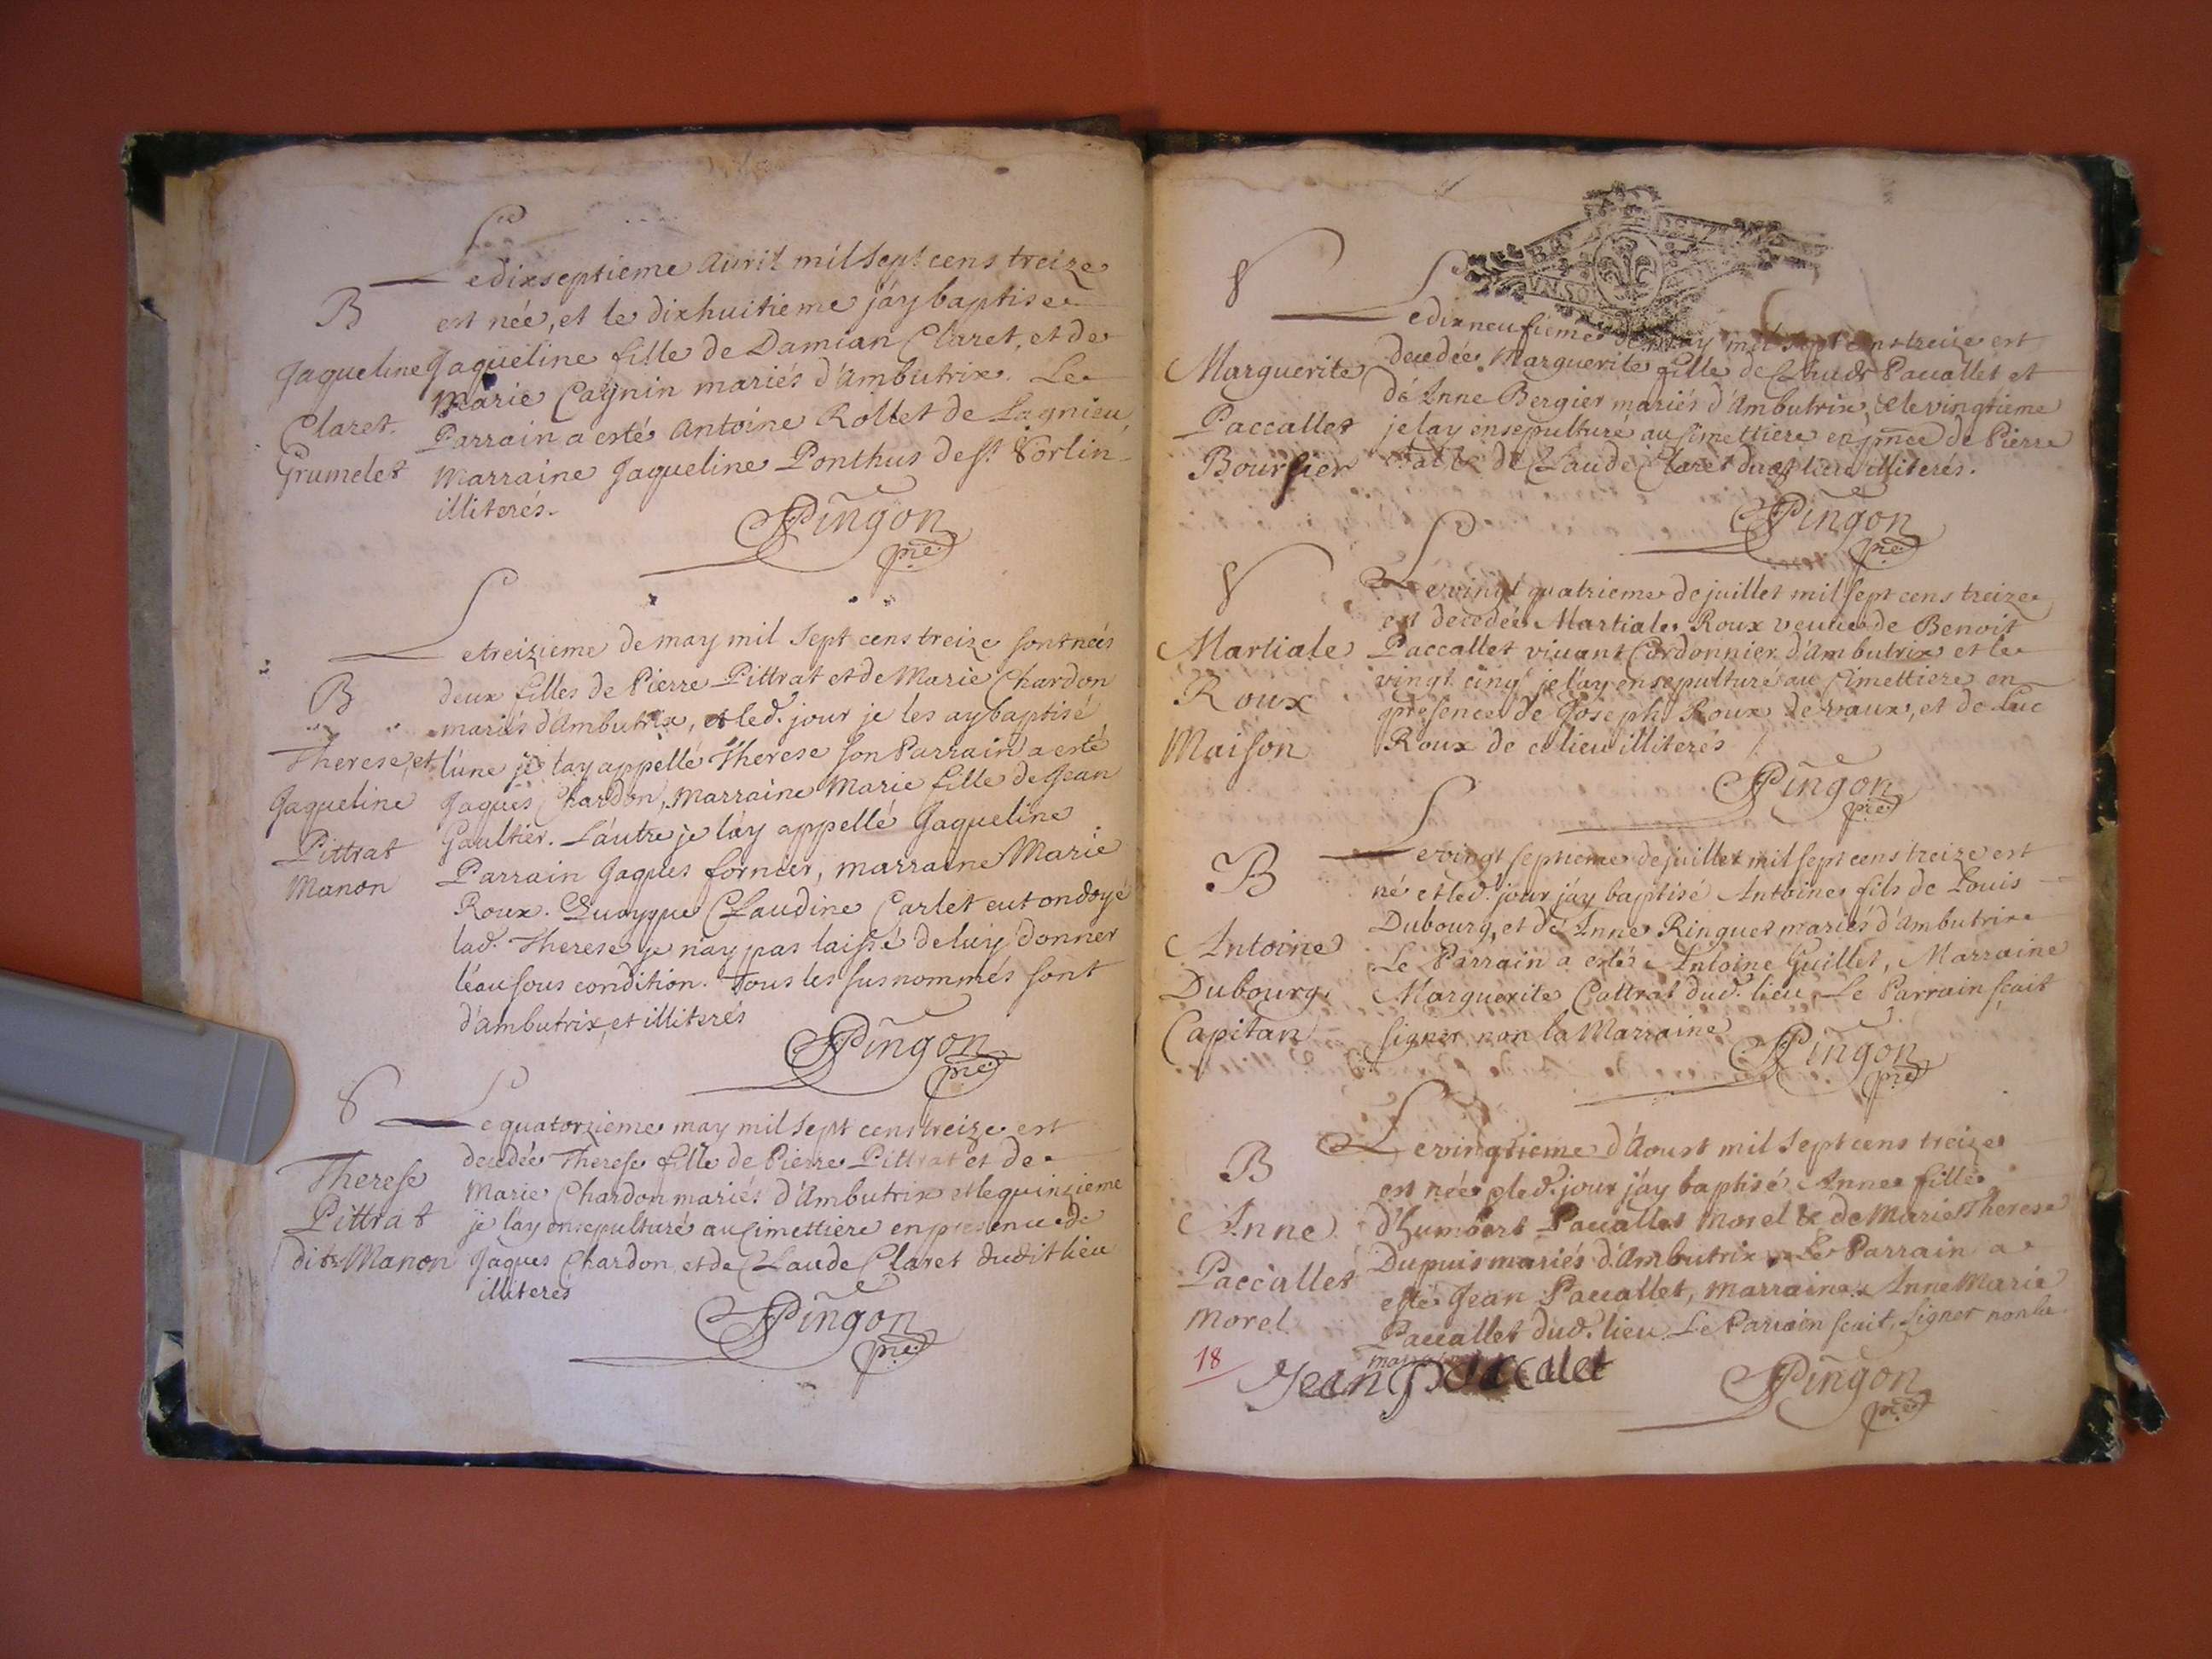 Le dixseptieme Auril mil sept cens treize
B
est née, et le dixhuitieme j'ay baptisée
Jaqueline
Jaqueline fille de Damian Claret, et de
Marie Cagnin mariés d'Ambutrix. Le
Claret
Parrain a esté Antoine Rollet de Lagnieu,
Grumelet
Marraine Jaqueline Ponthus de St. Vorlin
illiterés.
Pingon
pre.
Le treizieme de may mil sept cens treize sont neés
B
deux filles de Pierre Pittrat et de Marie Chardon
mariés d'Ambutrix, et led. jour je les ay baptisé
Therese, et
l'une je l'ay appellé Therese son Parrain a esté
Jaqueline
Jaques Chardon, Marraine Marie fille de Jean
Gaultier. L'autre je l'ay appellé Jaqueline
Pittrat
Parrain Jaques fornier, marraine Marie
Manon
Roux. Quoyque Claudine Carlet eut ondoyé
lad. Therese je n'ay pas laissé de luy donner
l'eau sous condition. Tous les susnommés sont
d'ambutrix, et illiterés
Pingon
pre.
S
Le quatorzieme may mil sept cens treize est
decedée Therese fille de Pierre Pittrat et de
Therese
Marie Chardon mariés d'Ambutrix et le quinzieme
Pittrat
je l'ay ensepulturé au simettiere en presence de
dite Manon
Jaques Chardon, et de Claude Claret dudit lieu
illiterés
Pingon
pre.
S
Le dixneufieme de may mil sept cens treize est
Marguerite
decedée Marguerite fille de Claude Paccallet et
d'Anne Bergier mariés d'Ambutrix, & le vingtieme
Paccallet
je l'ay ensepulturé au simettiere en pnce de Pierre
Boursier
& de Claude Claret dud. lieu illiterés.
Pingon
pre.
S
Le vingt quatrieme de juillet mil sept cens treize
est decedée Martiale Roux veuue de Benoit
Martiale
Paccallet viuant Cordonnier d'Ambutrix et le
Roux
vingt cinq je l'ay ensepulturé au Cimettiere en
presence de Joseph Roux de vaux, et de Luc
Maison
Roux de ce lieu illiterés
Pingon
pre.
B
Le vingt septieme de juillet mil sept cens treize est
né et led. jour j'ay baptisé Antoine fils de Louis
Dubourg, et de Anne Ringuet mariés d'Ambutrix
Antoine
Le Parrain a esté Antoine Guillet, Marraine
Dubourg
Marguerite Cattrat dud. lieu, Le Parrain scait
Capitan
signer non la Marraine
Pingon
pre.
Le vingtieme d'Aoust mil sept cens treize
B
est née, & led. jour j'ay baptisé Anne fille
Anne
d'Humbert Paccallet Morel & de Marie Therese
Dupuis mariés d'Ambutrix. Le Parrain a
Paccallet
esté Jean Paccallet, marraine Anne Marie
Morel
Paccallet dud. lieu. Le Parrain scait signer non la
marraine
18
Jean Paccalet
Pingon
pre.